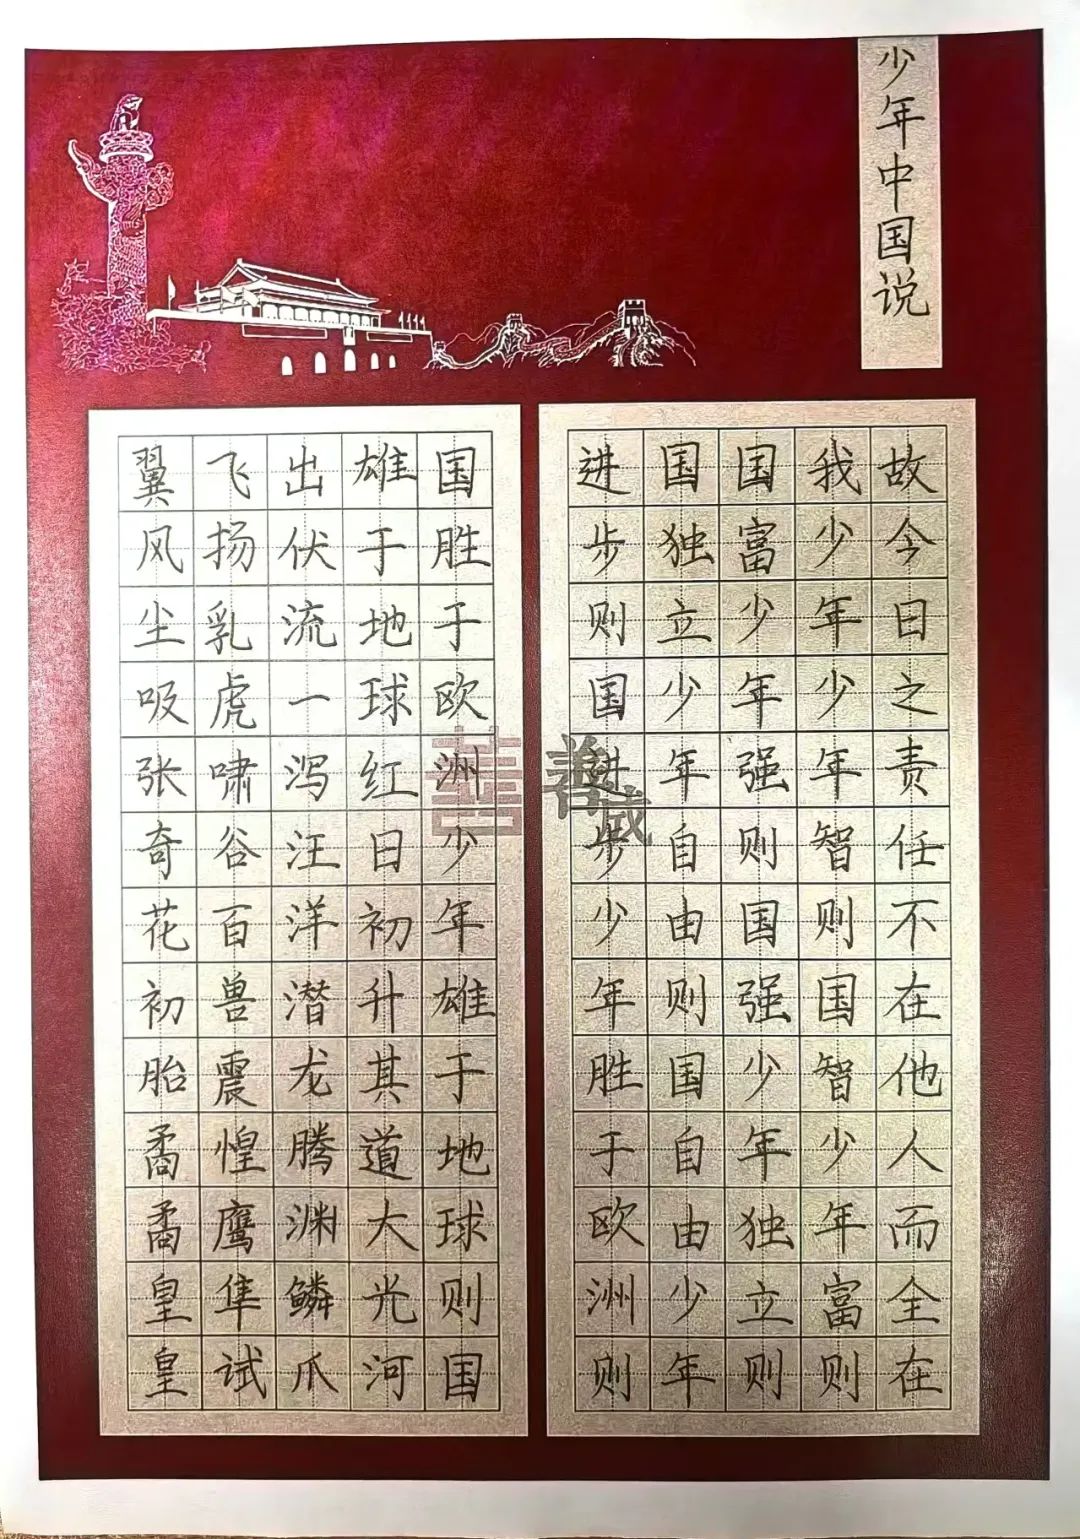 少年中国说
故今日之责任不在他人而全在
我少年少年智则国智少年富则
国富少年强则国强少年独立则
国独立少年自由则国自由少年
进步则国进步少年胜于欧洲则
国胜于欧洲少年雄于地球则国
雄于地球红日初升其道大光河
出伏流一泻汪洋潜龙腾渊鳞爪
飞扬乳虎啸谷百兽震惶鹰隼试
翼风尘吸张奇花初胎矞矞皇皇